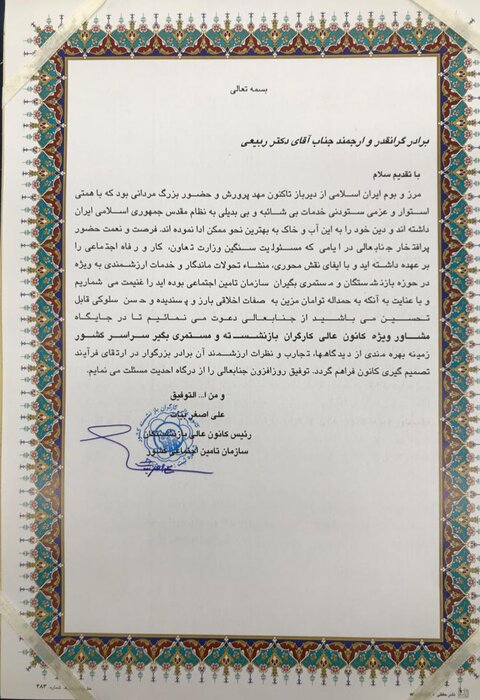 بسمه تعالی
برادر گرانقدر و ارجمند جناب آقای دکتر ربیعی
با تقدیم سلام
مرز و بوم ایران اسلامی از دیرباز تاکنون مهد پرورش و حضور بزرگ مردانی بود که با همتی
استوار و عزمی ستودنی خدمات بی شائبه و بی بدیلی به نظام مقدس جمهوری اسلامی ایران
داشته اند و دین خود را به این آب و خاک به بهترین نحو ممکن ادا نموده اند. فرصت و نعمت حضور
پرافتخار جنابعالی در ایامی که مسئولیت سنگین وزارت تعاون، کار و رفاه اجتماعی را
بر عهده داشته اید و با ایفای نقش محوری، منشاء تحولات ماندگار و خدمات ارزشمندی به ویژه
در حوزه بازنشستگان و مستمری بگیران سازمان تامین اجتماعی بوده اید را غنیمت می شماریم
و با عنایت به آنکه به حمداله توامان مزین به صفات اخلاقی بارز و پسندیده و حسن سلوکی قابل
تحسین می باشید از جنابعالی دعوت می نمائیم تا در جایگاه
مشاور ویژه کانون عالی کارگران بازنشسته و مستمری بگیر سراسر کشور
زمینه بهره مندی از دیدگاهها، تجارب و نظرات ارزشمند آن برادر بزرگوار در ارتقای فرآیند
تصمیم گیری کانون فراهم گردد. توفیق روزافزون جنابعالی را از درگاه احدیت مسئلت می نمایم.
و من ا... التوفیق
علی اصغر بیات
رئیس کانون عالی بازنشستگان
سازمان تامین اجتماعی کشور
شماره: ۳۸۳